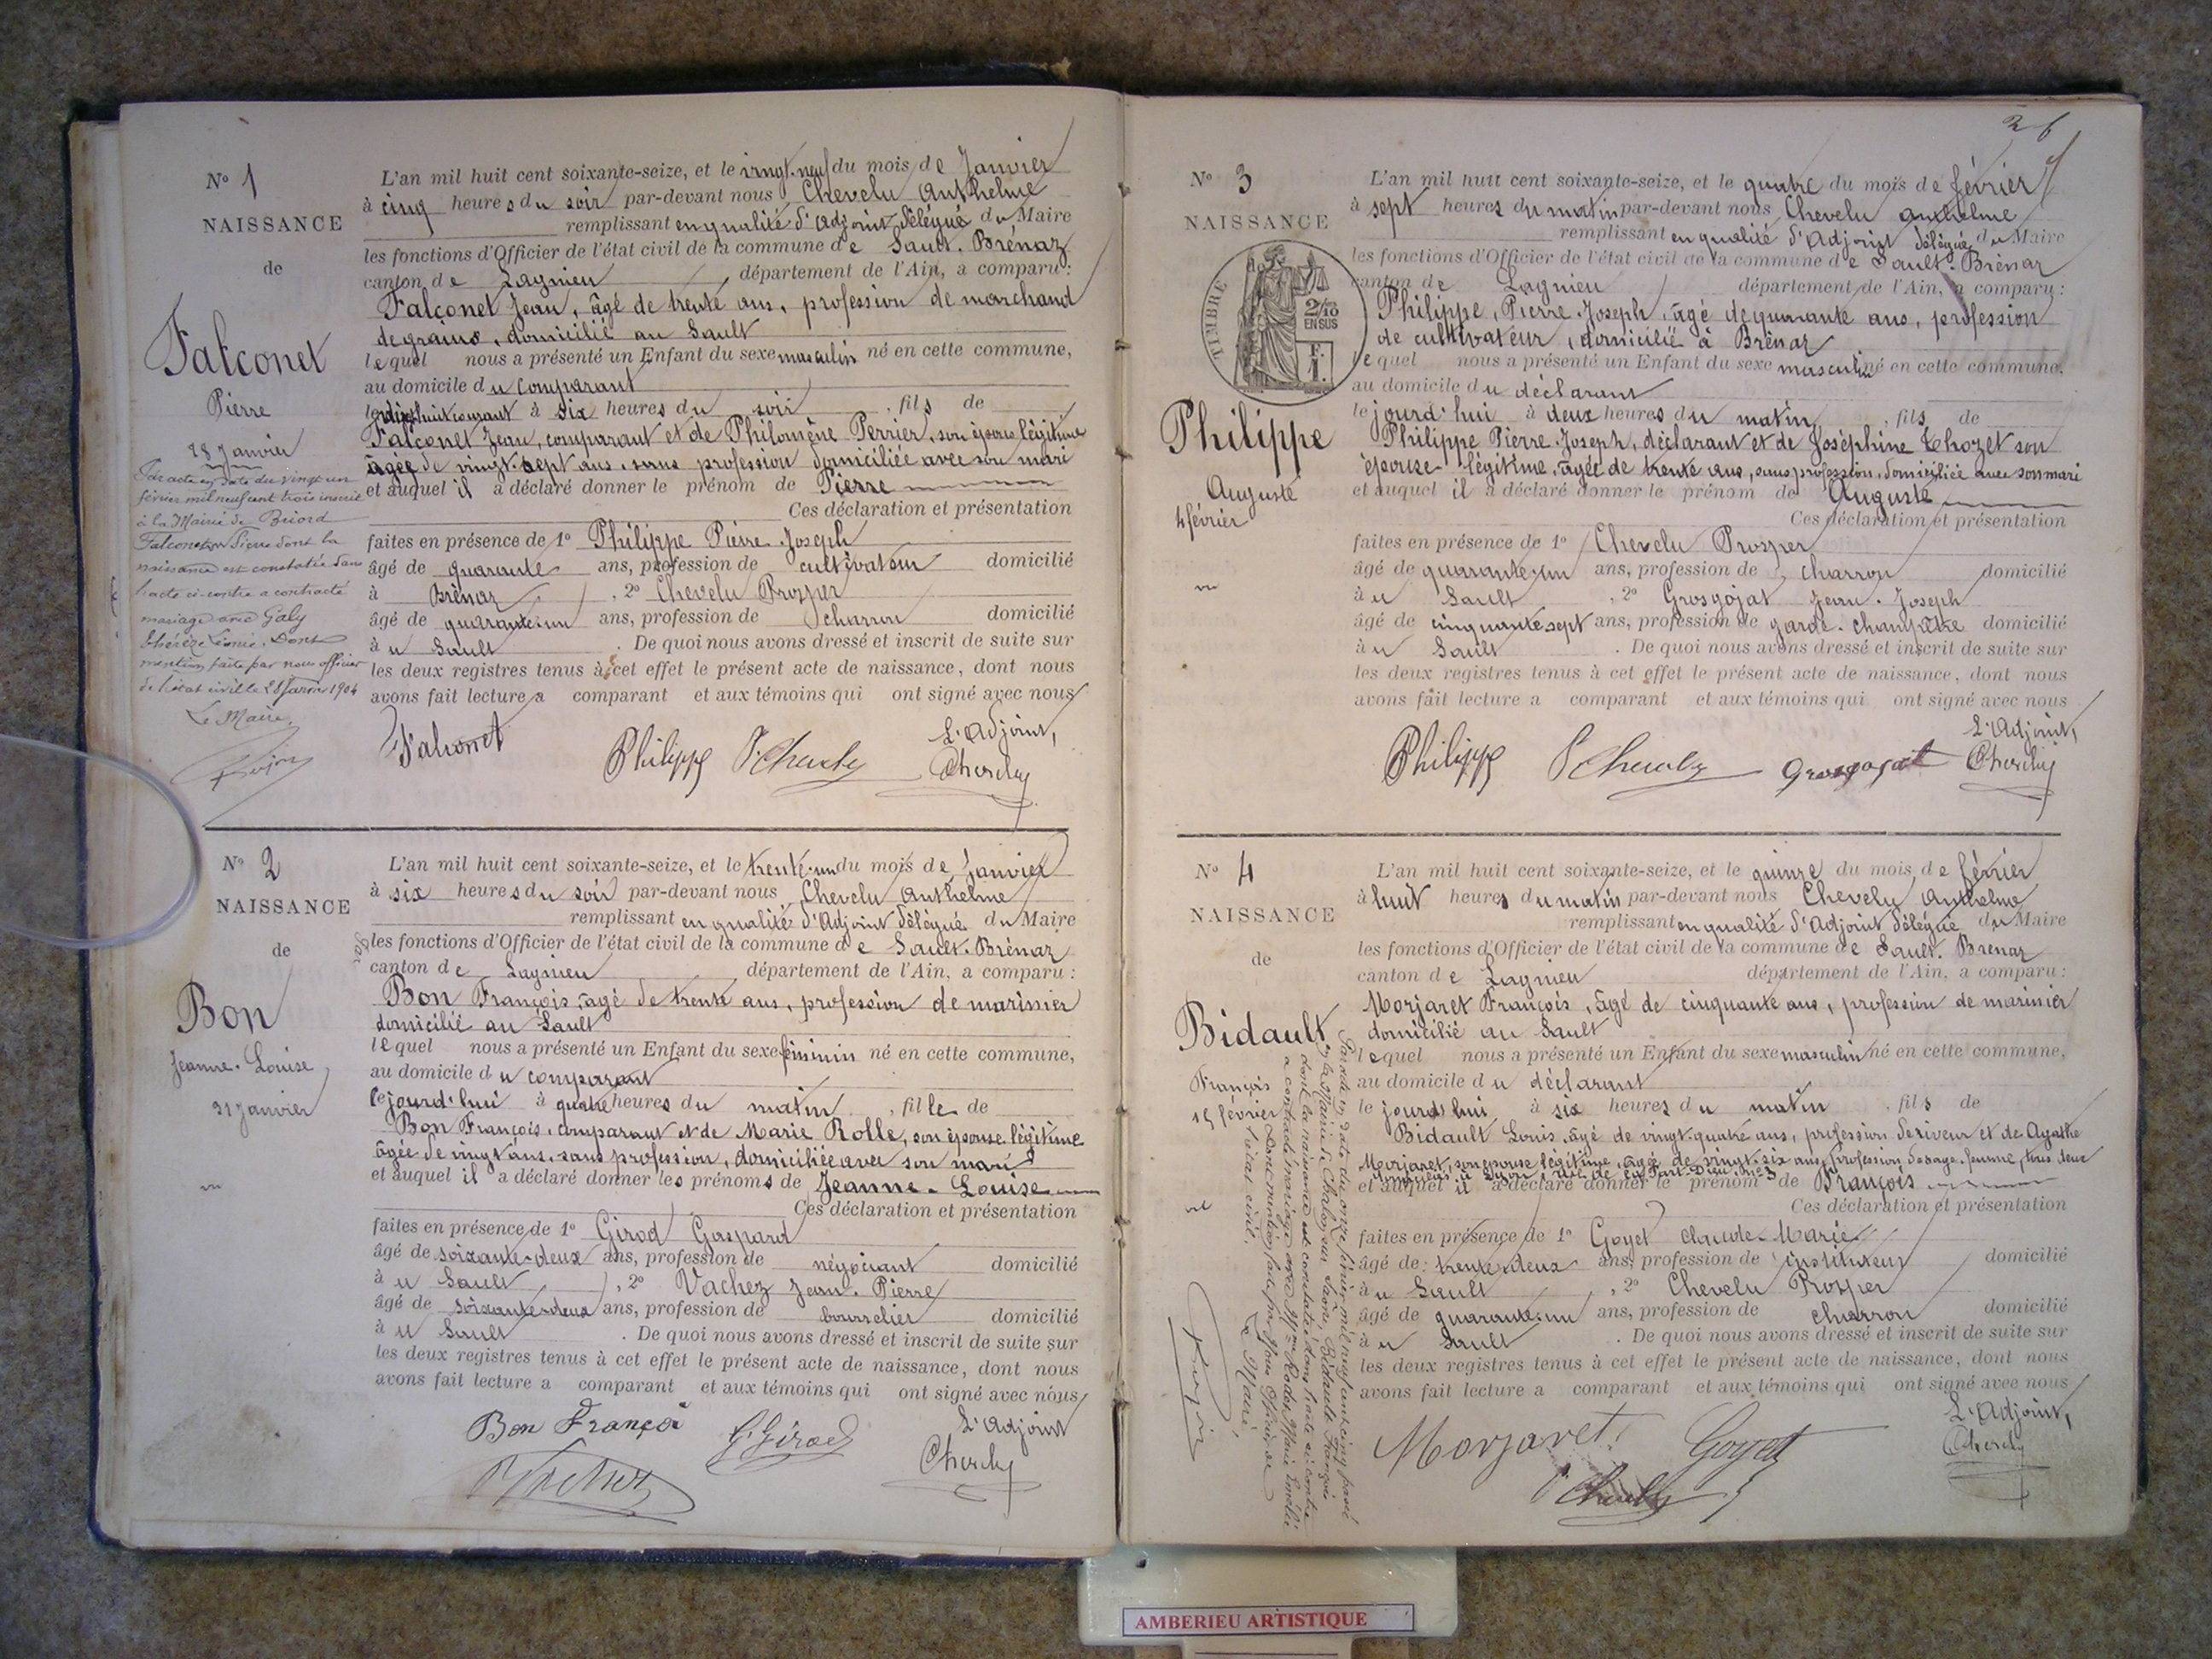 N° 1
NAISSANCE
de
Falconet
Pierre
28 Janvier
Par acte en date du vingt un
février mil neuf cent trois inscrit
à la Mairie de Briord
Falconet Pierre dont la
naissance est constatée dans
l'acte ci-contre a contracté
mariage avec Galy
Thérèze Léonie. Dont
mention faite par nous officier
de l'état civil le 28 Janvier 1904
Le Maire,
L'an mil huit cent soixante-seize, et le vingt-neuf du mois de Janvier
à cinq heures du soir par-devant nous Chevelu Anthelme
remplissant en qualité d'Adjoint délégué du Maire
les fonctions d'Officier de l'état civil de la commune de Sault-Brénaz
canton de Lagnieu, département de l'Ain, a comparu :
Falconet Jean, âgé de trente ans, profession de marchand
de grains, domicilié au Sault
lequel nous a présenté un Enfant du sexe masculin né en cette commune,
au domicile du comparant
le dix huit courant à six heures du soir, fils de
Falconet Jean, comparant et de Philomène Perrier, son épouse légitime
âgée de vingt-sept ans, sans profession domiciliée avec son mari
et auquel il a déclaré donner le prénom de Pierre
Ces déclaration et présentation
faites en présence de 1° Philippe Pierre Joseph
âgé de quarante ans, profession de cultivateur domicilié
à Brénaz, 2° Chevelu Prosper
âgé de quarante-un ans, profession de charron domicilié
au Sault. De quoi nous avons dressé et inscrit de suite sur
les deux registres tenus à cet effet le présent acte de naissance, dont nous
avons fait lecture a comparant et aux témoins qui ont signé avec nous
L'Adjoint,
Falconet Philippe P. Chevelu Chevelu
N° 2
NAISSANCE
de
Bon
Jeanne-Louise
31 Janvier
L'an mil huit cent soixante-seize, et le trente-un du mois de Janvier
à six heures du soir par-devant nous Chevelu Anthelme
remplissant en qualité d'Adjoint délégué du Maire
les fonctions d'Officier de l'état civil de la commune de Sault-Brénaz
canton de Lagnieu département de l'Ain, a comparu :
Bon François, âgé de trente ans, profession de marinier
domicilié au Sault
lequel nous a présenté un Enfant du sexe féminin né en cette commune,
au domicile du comparant
le jourd'hui à quatre heures du matin, fille de
Bon François, comparant et de Marie Rolle, son épouse légitime
âgée de vingt ans, sans profession, domiciliée avec son mari
et auquel il a déclaré donner les prénoms de Jeanne-Louise
Ces déclaration et présentation
faites en présence de 1° Girod Gaspard
âgé de soixante-deux ans, profession de négociant domicilié
au Sault, 2° Vachez Jean-Pierre
âgé de soixante-deux ans, profession de bourrelier domicilié
au Sault. De quoi nous avons dressé et inscrit de suite sur
les deux registres tenus à cet effet le présent acte de naissance, dont nous
avons fait lecture a comparant et aux témoins qui ont signé avec nous
Bon Françoi G. Girod L'Adjoint
Vachez Chevelu
26
N° 3
NAISSANCE
TIMBRE
2/10
EN SUS
F.
1.
Philippe
Auguste
4 février
L'an mil huit cent soixante-seize, et le quatre du mois de février
à sept heures du matin par-devant nous Chevelu Anthelme
remplissant en qualité d'Adjoint délégué du Maire
les fonctions d'Officier de l'état civil de la commune de Sault-Brénaz
canton de Lagnieu département de l'Ain, a comparu :
Philippe, Pierre-Joseph, âgé de quarante ans, profession
de cultivateur, domicilié à Brénaz
lequel nous a présenté un Enfant du sexe masculin né en cette commune,
au domicile du déclarant
le jourd'hui à deux heures du matin, fils de
Philippe Pierre-Joseph, déclarant et de Joséphine Chozet son
épouse légitime, âgée de trente ans, sans profession, domiciliée avec son mari
et auquel il a déclaré donner le prénom de Auguste
Ces déclaration et présentation
faites en présence de 1° Chevelu Prosper
âgé de quarante-un ans, profession de charron domicilié
au Sault, 2° Grosgojat Jean-Joseph
âgé de cinquante sept ans, profession de garde-champêtre domicilié
au Sault. De quoi nous avons dressé et inscrit de suite sur
les deux registres tenus à cet effet le présent acte de naissance, dont nous
avons fait lecture a comparant et aux témoins qui ont signé avec nous
L'Adjoint,
Philippe P. Chevelu Grosgojat Chevelu
N° 4
NAISSANCE
de
Bidault
François
15 février
Par acte en date du onze février mil neuf cent cinq passé
à la Mairie de Chalon sur Saône, Bidault François
dont la naissance est constatée dans l'acte ci-contre
a contracté mariage avec Rodes Marie Amélie
Dont mention faite par Nous Officier de
l'état civil.
Le Maire,
L'an mil huit cent soixante-seize, et le quinze du mois de février
à huit heures du matin par-devant nous Chevelu Anthelme
remplissant en qualité d'Adjoint délégué du Maire
les fonctions d'Officier de l'état civil de la commune de Sault-Brenaz
canton de Lagnieu département de l'Ain, a comparu :
Morjaret François, âgé de cinquante ans, profession de marinier
domicilié au Sault
lequel nous a présenté un Enfant du sexe masculin né en cette commune,
au domicile du déclarant
le jourd'hui à six heures du matin, fils de
Bidault Louis âgé de vingt-quatre ans, profession de riveur et de Agathe
Morjaret, son épouse légitime, âgée de vingt-six ans, profession de sage-femme, tous deux
domiciliés à Lyon
et auquel il a déclaré donner le prénom de François
Ces déclaration et présentation
faites en présence de 1° Goyet Claude-Marie
âgé de trente-deux ans, profession de instituteur domicilié
au Sault, 2° Chevelu Prosper
âgé de quarante-un ans, profession de charron domicilié
au Sault. De quoi nous avons dressé et inscrit de suite sur
les deux registres tenus à cet effet le présent acte de naissance, dont nous
avons fait lecture a comparant et aux témoins qui ont signé avec nous
L'Adjoint,
Morjaret Goyet Chevelu
P. Chevelu
AMBERIEU ARTISTIQUE